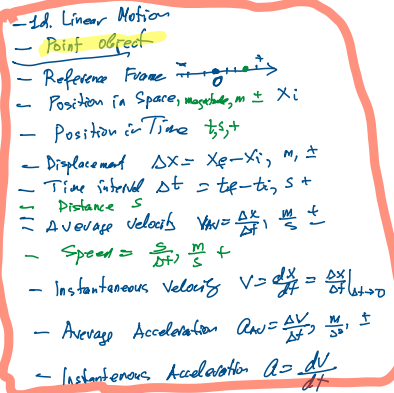 - 1d. Linear Motion
- Point object
- Reference Frame - 0 +
- Position in Space, magnitude, m ± Xi
- Position in Time t, s, +
- Displacement Δx = Xf - Xi, m, ±
- Time interval Δt = tf - ti, s +
- Distance S
- Average Velocity VAV = Δx/Δt, m/s ±
- Speed = S/Δt, m/s +
- Instantaneous Velocity V = dx/dt = Δx/Δt|Δt→0
- Average Acceleration aAV = ΔV/Δt, m/s², ±
- Instantenous Acceleration a = dV/dt